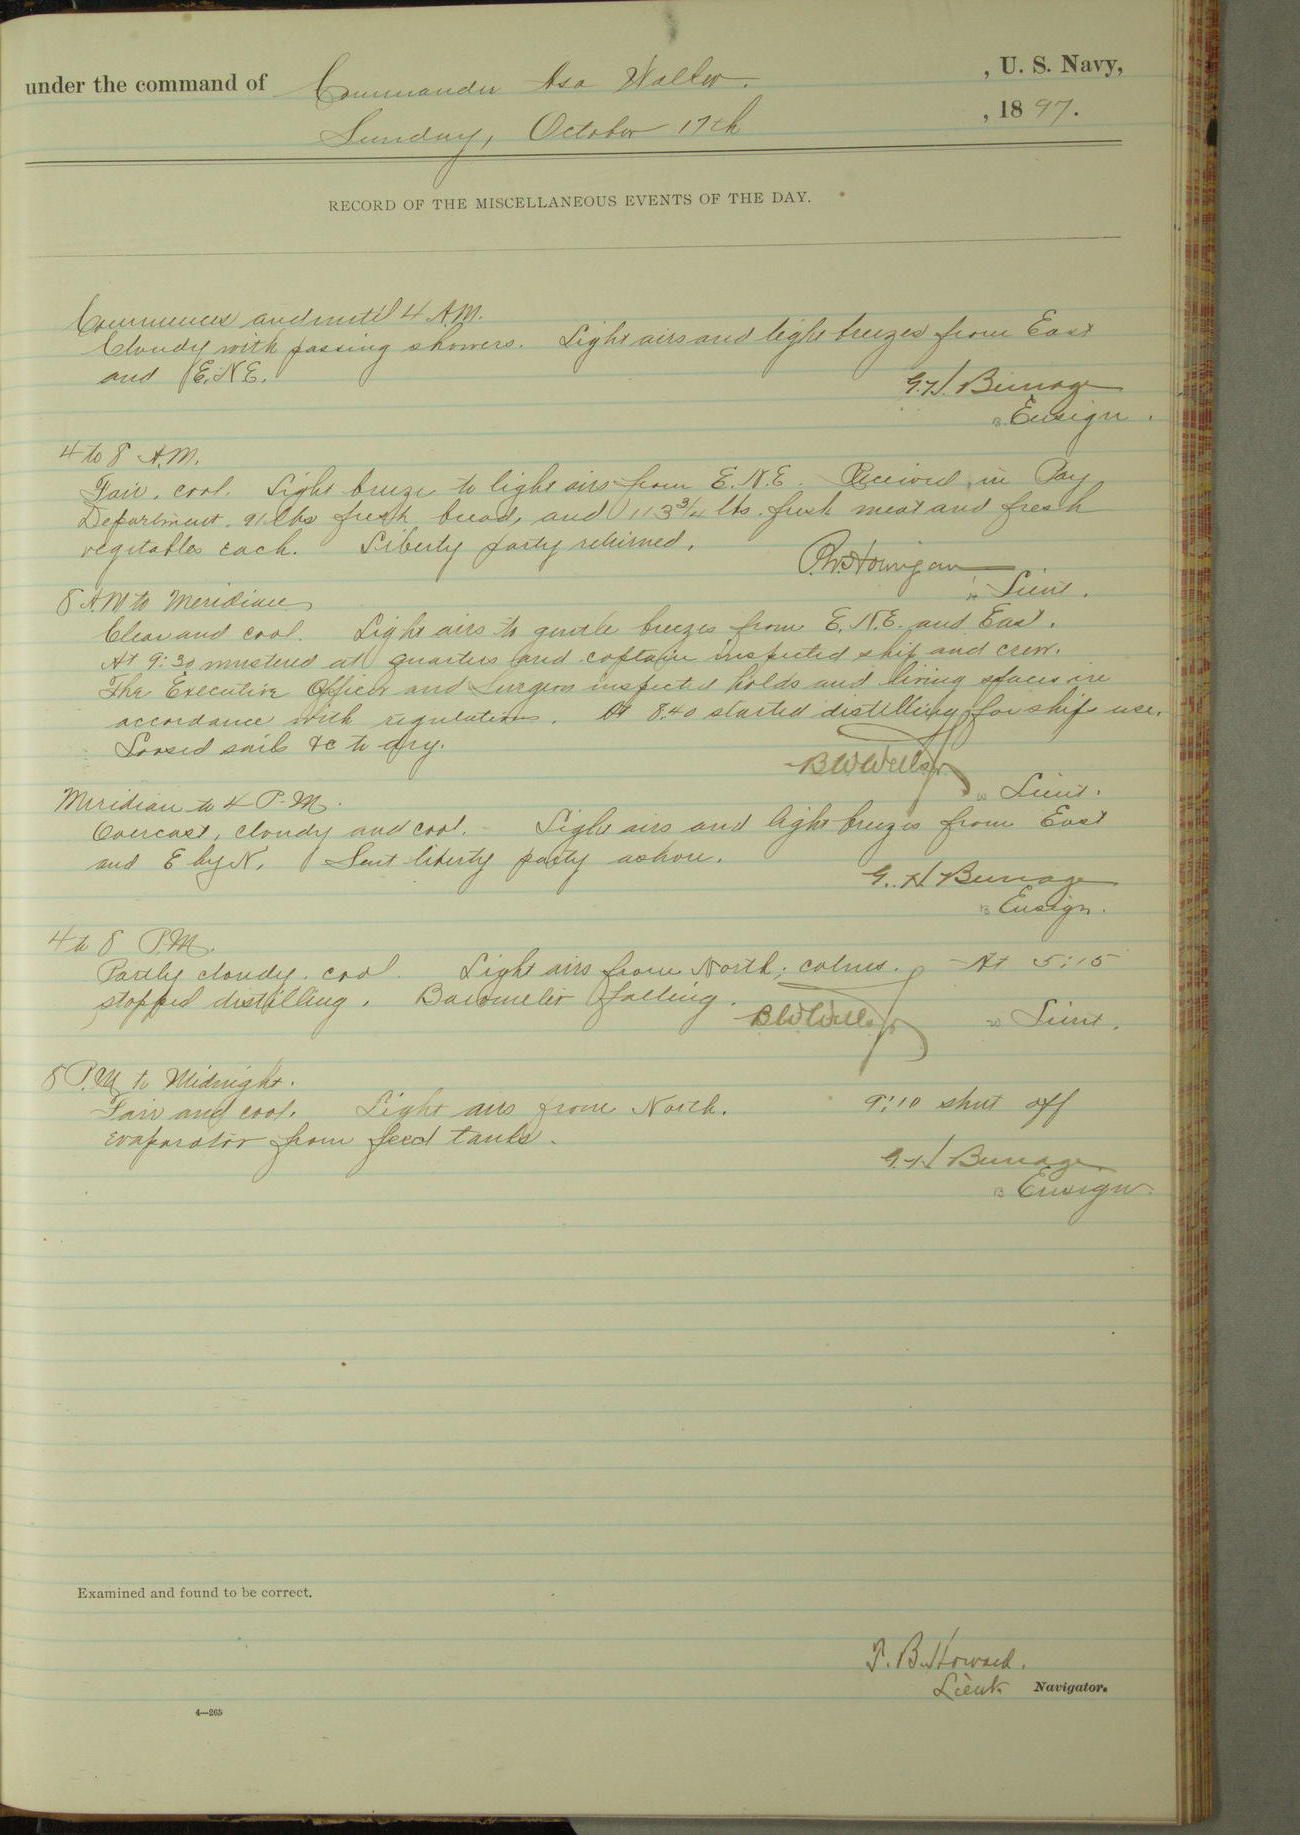 under the command of Commander Asa Walker. , U. S. Navy,
Sunday, October 17th , 1897.
RECORD OF THE MISCELLANEOUS EVENTS OF THE DAY.
Commences and until 4 A.M.
Cloudy with passing showers. Light airs and light breezes from East
and E.N.E.
G.H. Burrage
Ensign.
4 to 8 A.M.
Fair, cool. Light breeze to light airs from E.N.E. Received in Pay
Department, 91 lbs fresh bread, and 113 3/4 lbs. fresh meat and fresh
vegetables each. Liberty party returned.
P.W. Hourigan
Lieut.
8 A.M to Meridian
Clear and cool. Light airs to gentle breezes from E.N.E. and East.
At 9:30 mustered at quarters and captain inspected ship and crew.
The Executive Officer and Surgeon inspected holds and living spaces in
accordance with regulations. At 8.40 started distilling for ship's use.
Loosed sails &c to dry.
B W Wells Jr
Lieut.
Meridian to 4 P.M.
Overcast, cloudy and cool. Light airs and light breezes from East
and E by N. Sent liberty party ashore.
G. H Burrage
Ensign.
4 to 8 P.M.
Partly cloudy. cool. Light airs from North; calms. At 5:15
stopped distilling. Barometer falling.
B W Wells Jr
Lieut.
8 P.M to Midnight.
Fair and cool. Light airs from North. 9:10 shut off
evaporator from feed tanks.
G.H Burrage
Ensign
Examined and found to be correct.
T. B. Howard.
Lieut. Navigator.
4—265